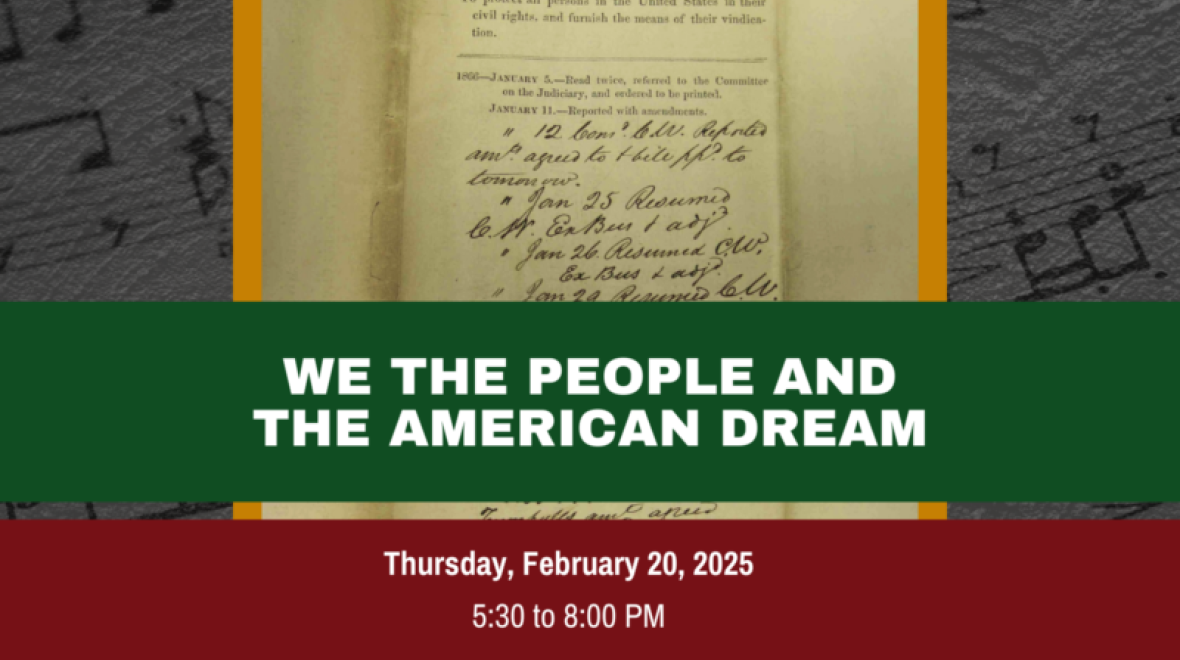 To protect all persons in the United States in their
civil rights, and furnish the means of their vindica-
tion.
1866—JANUARY 5.—Read twice, referred to the Committee
on the Judiciary, and ordered to be printed.
JANUARY 11.—Reported with amendments.
" 12 Cons.d C.W. Reported
am.ts agreed to & bill pp.d to
tomorrow.
" Jan 25 Resumed
C.W. Ex Bus & adj.
" Jan 26. Resumed C.W.
Ex Bus & adj.
" Jan 29 Resumed C.W.
WE THE PEOPLE AND
THE AMERICAN DREAM
Trumbulls am.t agreed
Thursday, February 20, 2025
5:30 to 8:00 PM